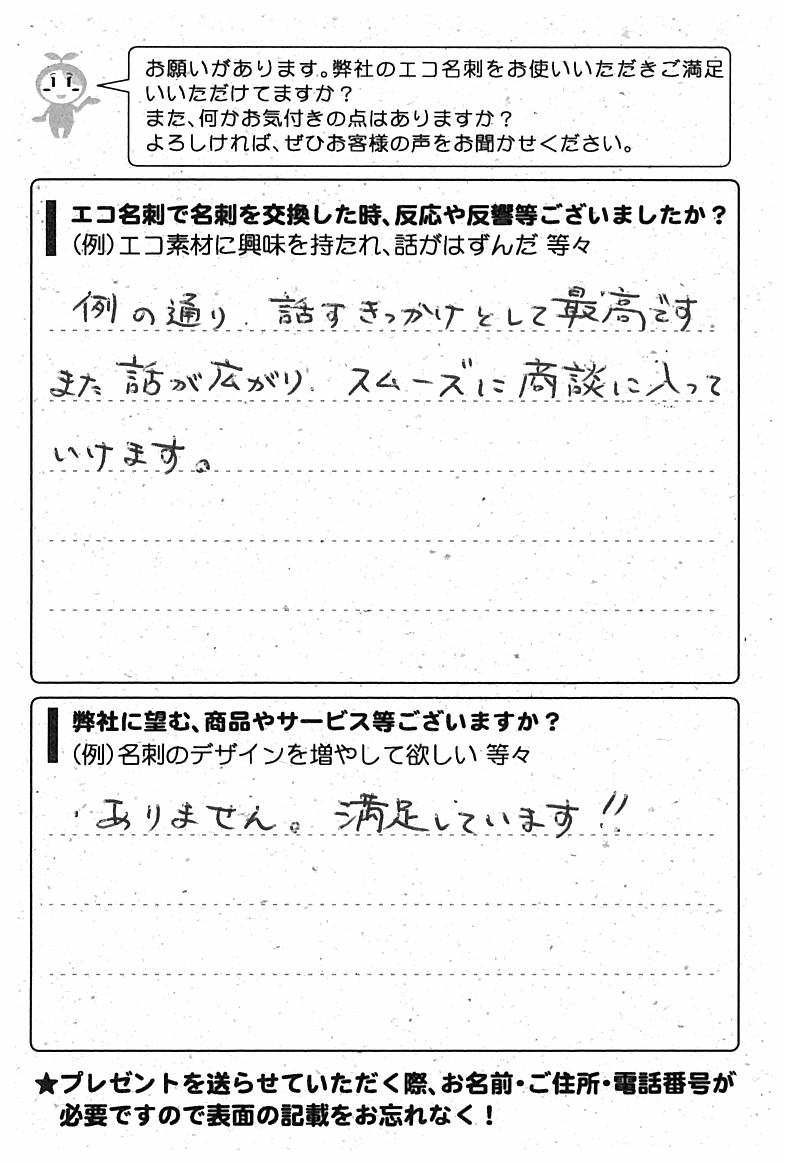 お願いがあります。弊社のエコ名刺をお使いいただきご満足
いいただけてますか？
また、何かお気付きの点はありますか？
よろしければ、ぜひお客様の声をお聞かせください。
エコ名刺で名刺を交換した時、反応や反響等ございましたか？
（例）エコ素材に興味を持たれ、話がはずんだ 等々
例の通り、話すきっかけとして最高です
また話が広がり、スムーズに商談に入って
いけます。
弊社に望む、商品やサービス等ございますか？
（例）名刺のデザインを増やして欲しい 等々
・ありません。満足しています!!
★プレゼントを送らせていただく際、お名前・ご住所・電話番号が
必要ですので表面の記載をお忘れなく！